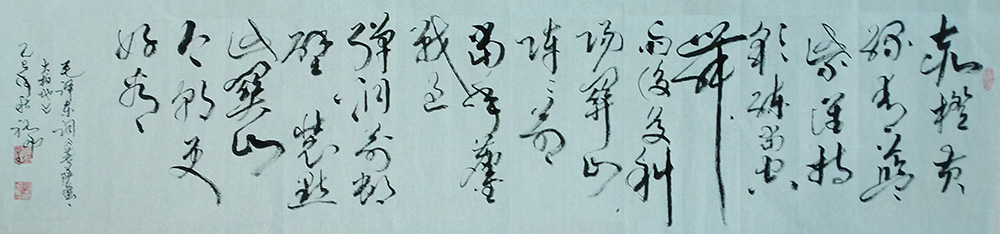 赤橙黄
绿青蓝
紫谁持
彩练当空
舞
雨後复斜
阳关山
阵阵苍
当年鏖
战急
弹洞前村
壁装点
此关山
今朝更
好看
毛泽东词菩萨蛮
大柏地